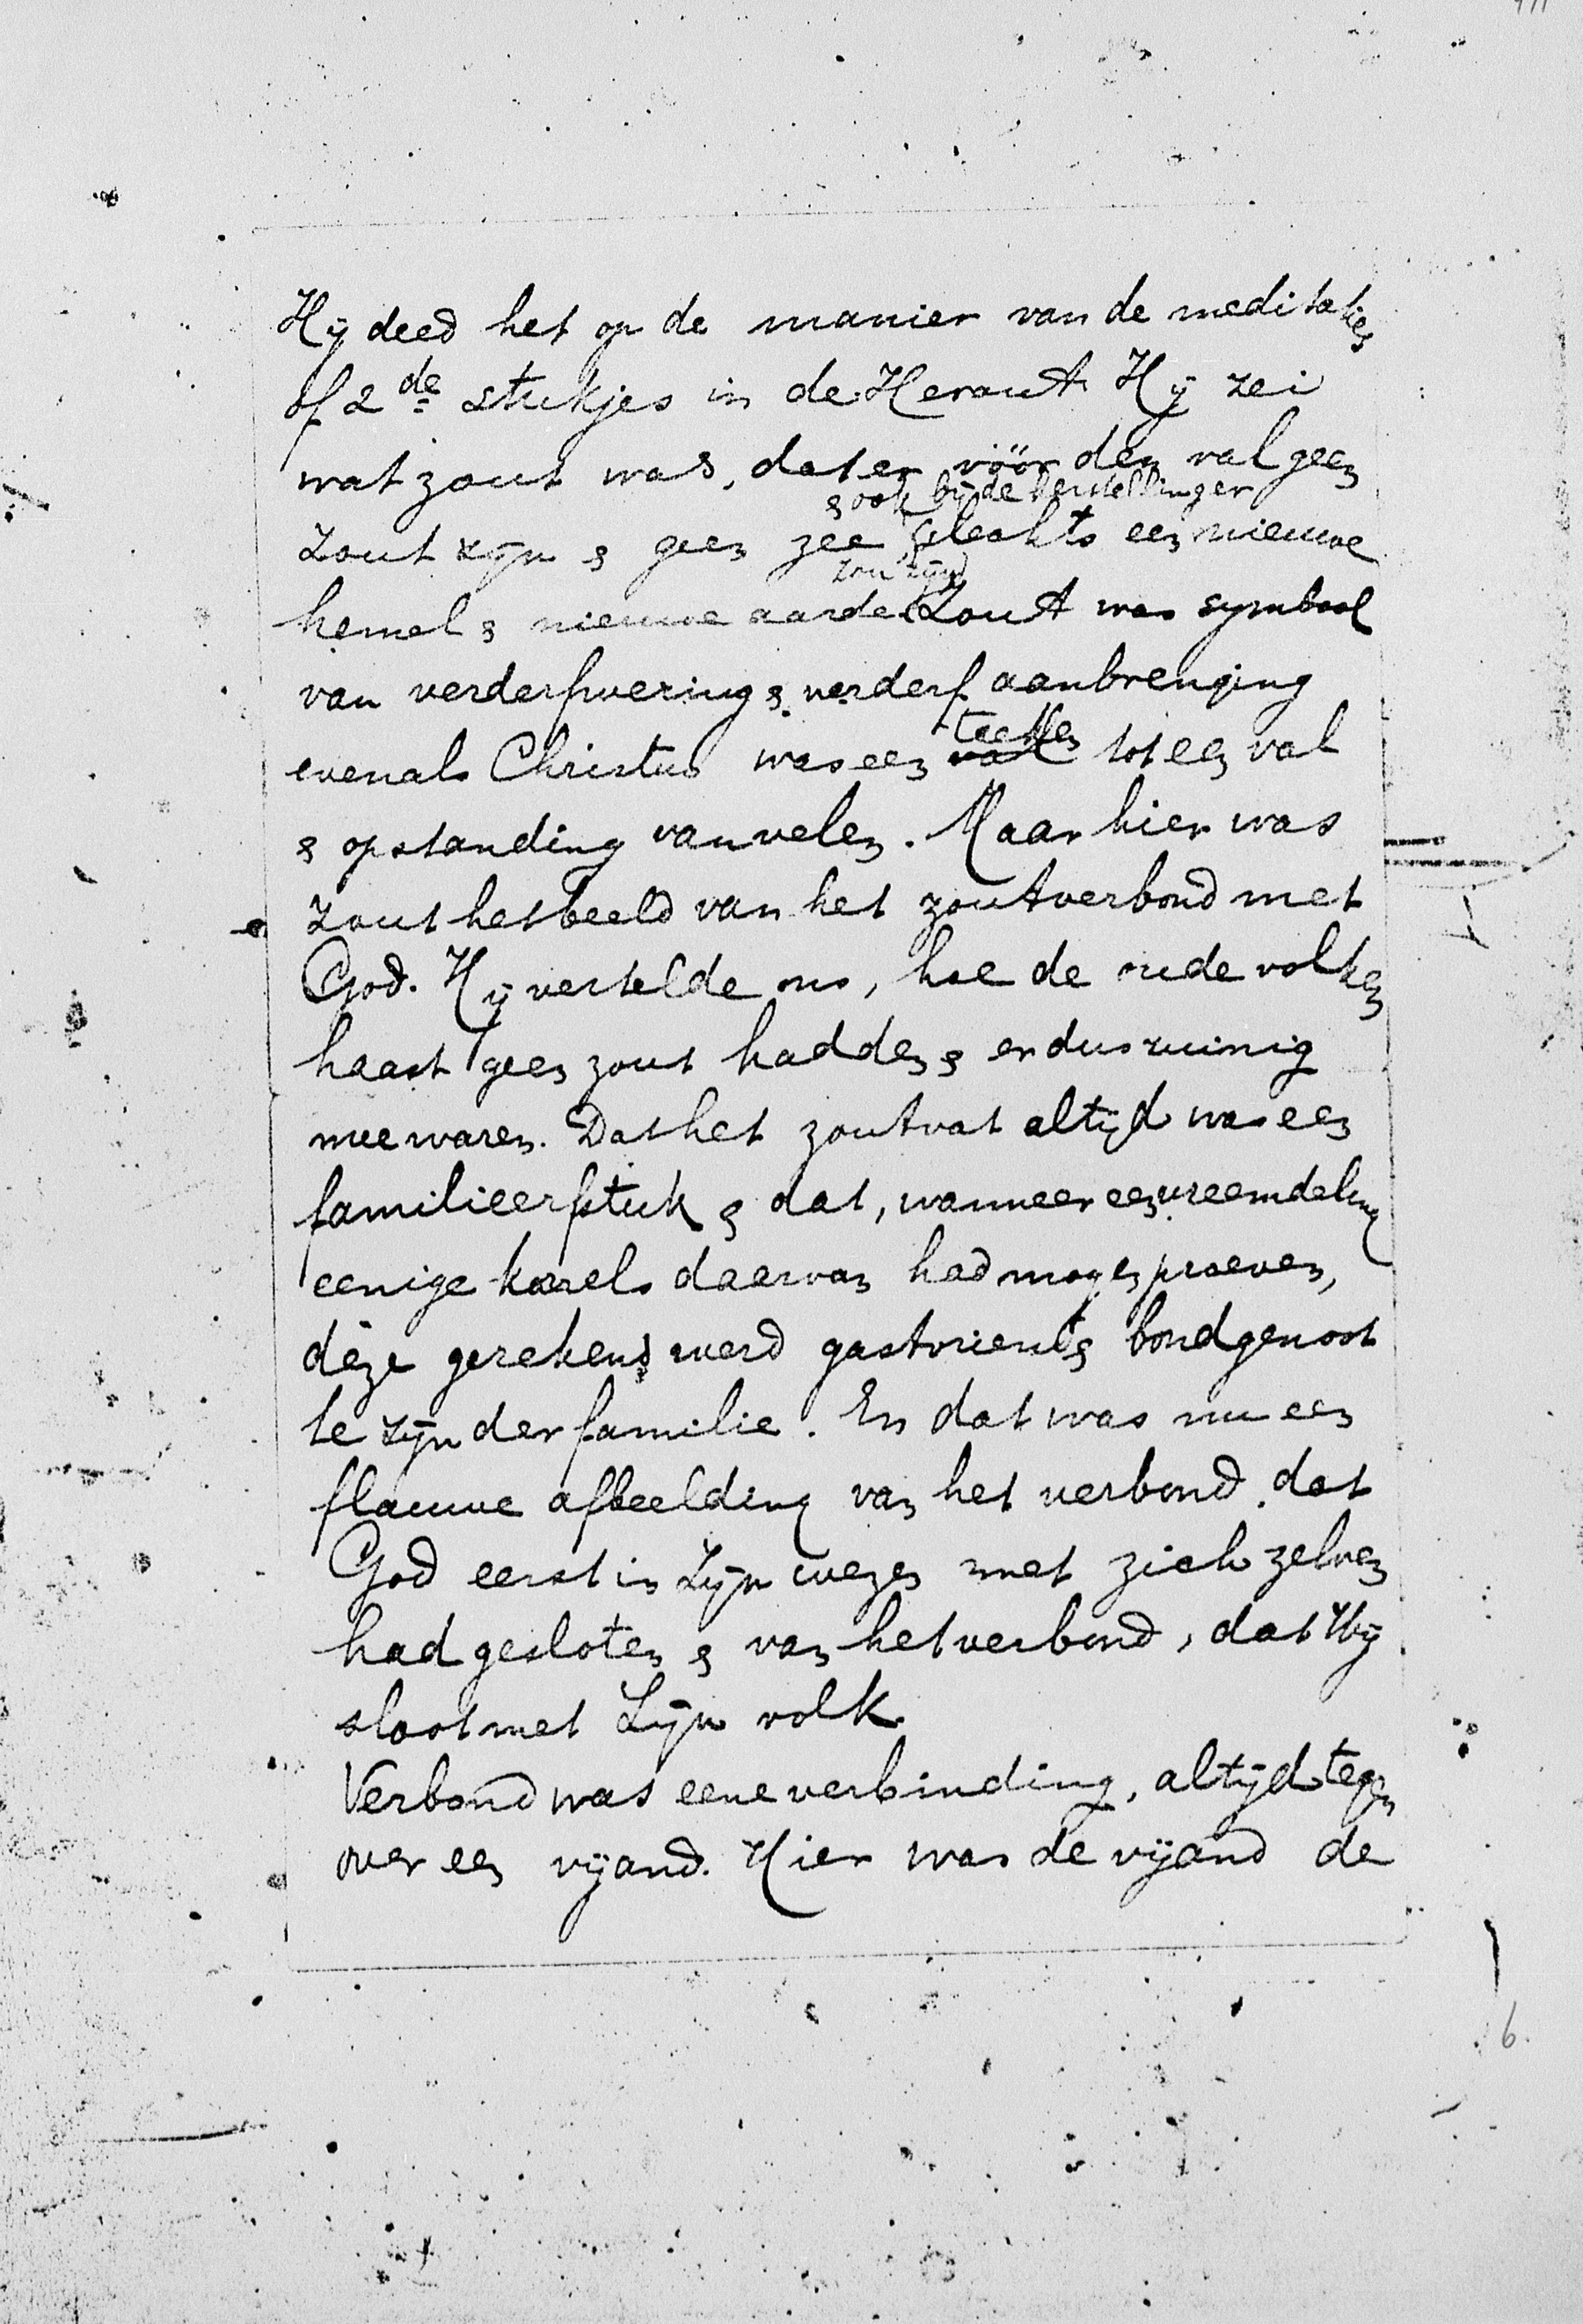 Hij deed het op de manier van de meditaties
of 2de stukjes in de Heraut. Hij zei
wat zout was, dat er vóór den val geen
& ook bij de herstellinger
zout zijn & geen zee slechts een nieuwe
zou zijn
hemel & nieuwe aarde. Zout was symbool
van verderfwering & verderf aanbrenging
evenals Christus was een teeken tot een val
& opstanding van velen. Maar hier was
zout het beeld van het zoutverbond met
God. Hij vertelde ons, hoe de oude volken
haast geen zout hadden & er dus zuinig
mee waren. Dat het zoutvat altijd was een
familieerfstuk & dat, wanneer een vreemdeling
eenige korrels daarvan had mogen proeven,
deze gerekend werd gastvriend & bondgenoot
te zijn der familie. En dat was nu een
flauwe afbeelding van het verbond, dat
God eerst in Zijn wezen met zich zelven
had gesloten & van het verbond, dat Hij
sloot met Zijn volk.
Verbond was eene verbinding, altijd tegen
over een vijand. Hier was de vijand de
6.